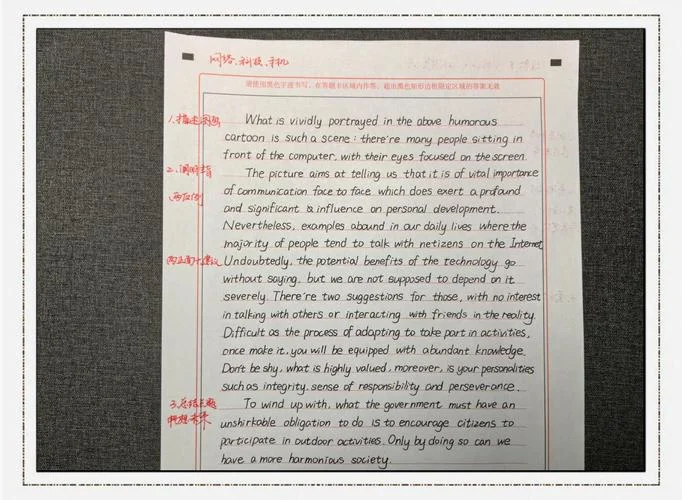 网络、科技、手机
请使用黑色字迹书写，在答题卡区域内作答，超出黑色矩形边框限定区域的答案无效
1.描述图画
What is vividly portrayed in the above humorous
cartoon is such a scene: there're many people sitting in
front of the computer, with their eyes focused on the screen.
2.阐明主旨
The picture aims at telling us that it is of vital importance
of communication face to face which does exert a profound
and significant influence on personal development.
Nevertheless, examples abound in our daily lives where the
majority of people tend to talk with netizens on the Internet
Undoubtedly, the potential benefits of the technology go
without saying, but we are not supposed to depend on it
severely. There're two suggestions for those, with no interest
in talking with others or interacting with friends in the reality.
Difficult as the process of adapting to take part in activities,
once make it, you will be equipped with abundant knowledge.
Don't be shy, what is highly valued, moreover, is your personalities
such as integrity, sense of responsibility and perseverance.
3.总结主题
To wind up with, what the government must have an
unshirkable obligation to do is to encourage citizens to
participate in outdoor activities. Only by doing so can we
have a more harmonious society.